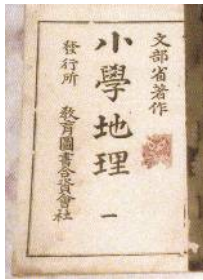 文部省著作
小學地理 一
發行所 敎育圖書合資會社